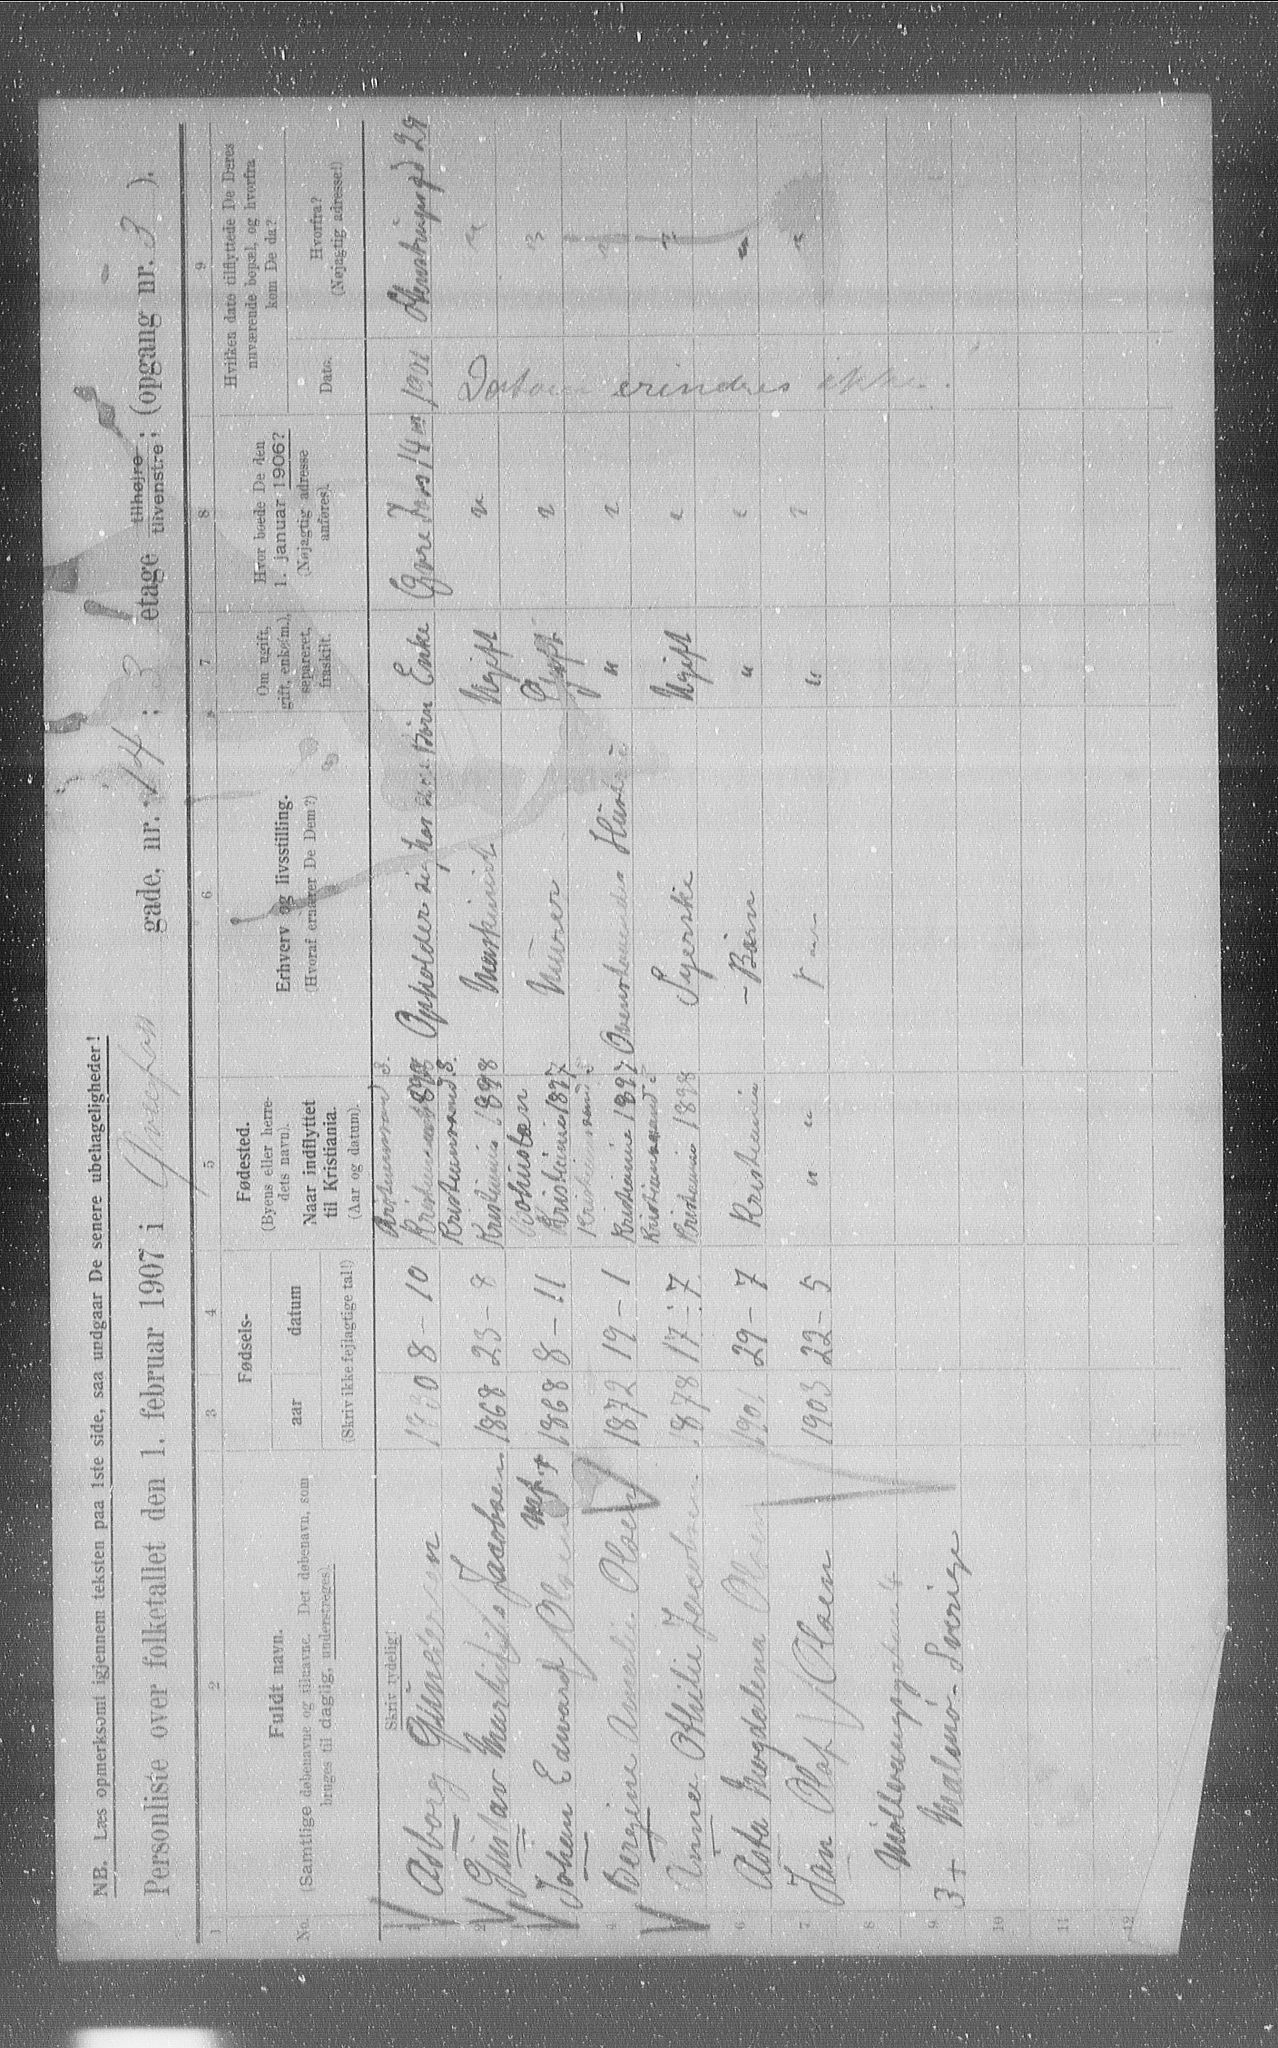 NB. Læs opmerksomt igjennem teksten paa 1ste side, saa undgaar De senere ubehageligheder!
Personliste over folketallet den 1. februar 1907 i gade, nr. 14 ; 3 etage tilhøjre ; tilvenstre ; (opgang nr. 3 ).
1 2 3 4 5 6 7 8 9
No.
Fuldt navn.
(Samtlige døbenavne og tilnavne. Det døbenavn, som
bruges til daglig, understreges).
Fødsels-
aar datum
(Skriv ikke fejlagtige tal!)
Fødested.
(Byens eller herre-
dets navn).
Naar indflyttet
til Kristiania.
(Aar og datum).
Erhverv og livsstilling.
(Hvoraf ernærer De Dem?)
Om ugift,
gift, enke(m.),
separeret,
fraskilt.
Hvor boede De den
1. januar 1906?
(Nøjagtig adresse
anføres).
Hvilken dato tilflyttede De Deres
nuværende bopæl, og hvorfra
kom De da?
Dato.
Hvorfra?
(Nøjagtig adresse!)
Skriv tydelig!
Kristiansand S.
1 Asborg Gundersen 8 - 10 Opholder sig hos Børn Enke 14 1901 29
Kristiansand S.
2 Gustav Jacobsen 1868 23 - 8 Kristiania 1898 Maskinist Ugift " Datoen erindres ikke. "
3 Johan Edward Olsen 1868 8 - 11 Kristiania 1897 Murer Gift " "
Kristiansand S
4 Bergine Amalie Olsen 1872 19 - 1 Kristiania 1897 Ovenstaaendes Hustru " " "
Kristiansand S
5 Anna Othilie Jacobsen 1878 17 - 7 Kristiania 1898 Syerske Ugift " "
6 Asta Magdalena Olsen 1901 29 - 7 Kristiania - Barn " " "
7 Jan Olaf Olsen 1903 22 - 5 " " " " " "
8
9 3 + Malmø - Sverige
10
11
12